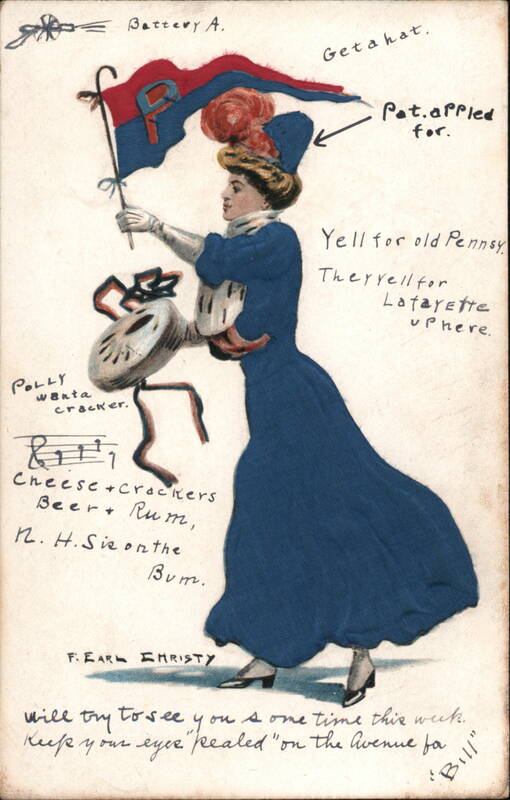 Battery A.
Get a hat.
P
Pat. applied
for.
Yell for old Pennsy.
They yell for
Lafayette
up here.
Polly
wanta
cracker.
Cheese + Crackers
Beer + Rum,
N. H. Sis on the
Bum.
F. EARL CHRISTY
Will try to see you some time this week.
Keep your eyes "pealed" on the Avenue fa
"Bill"